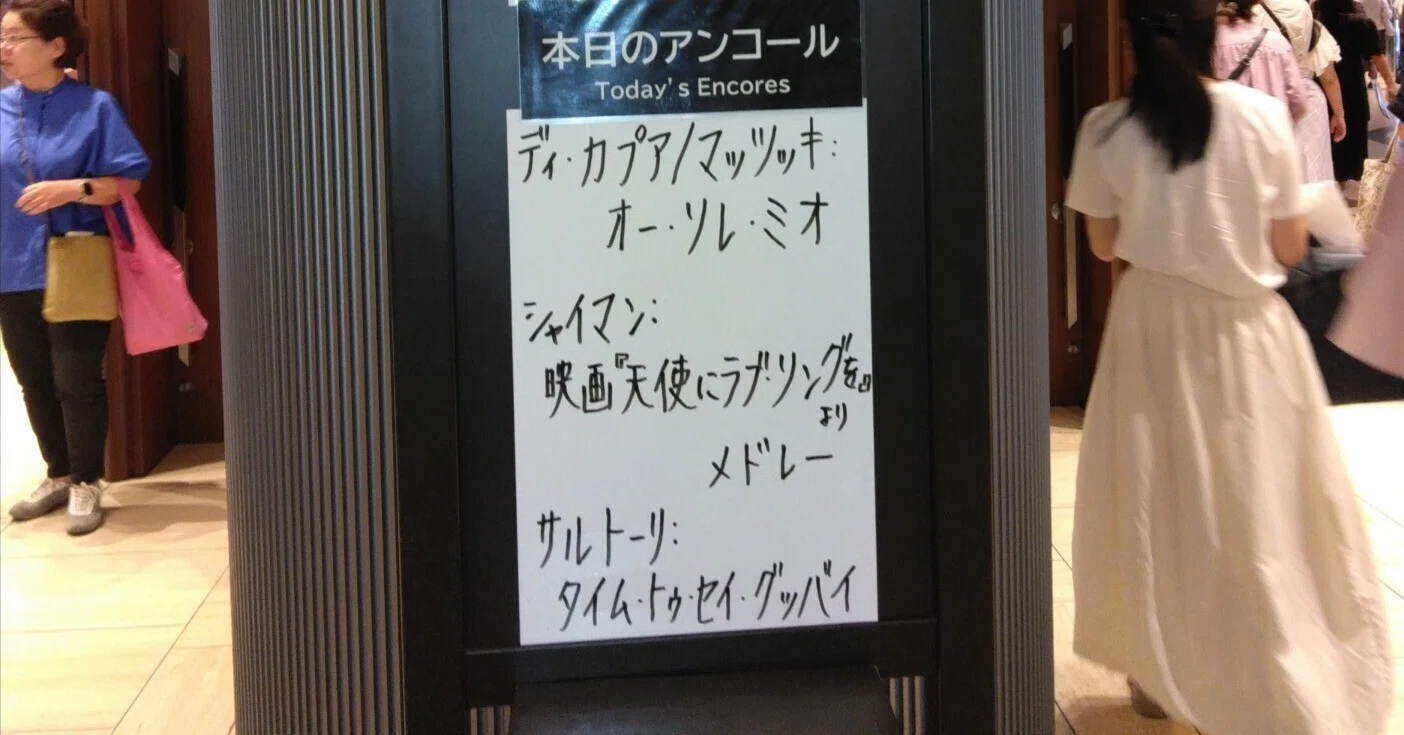 本日のアンコール
Today's Encores
ディ・カプア/マッツッキ:
オー・ソレ・ミオ
シャイマン:
映画『天使にラブ・ソングを』
より
メドレー
サルトーリ:
タイム・トゥ・セイ・グッバイ